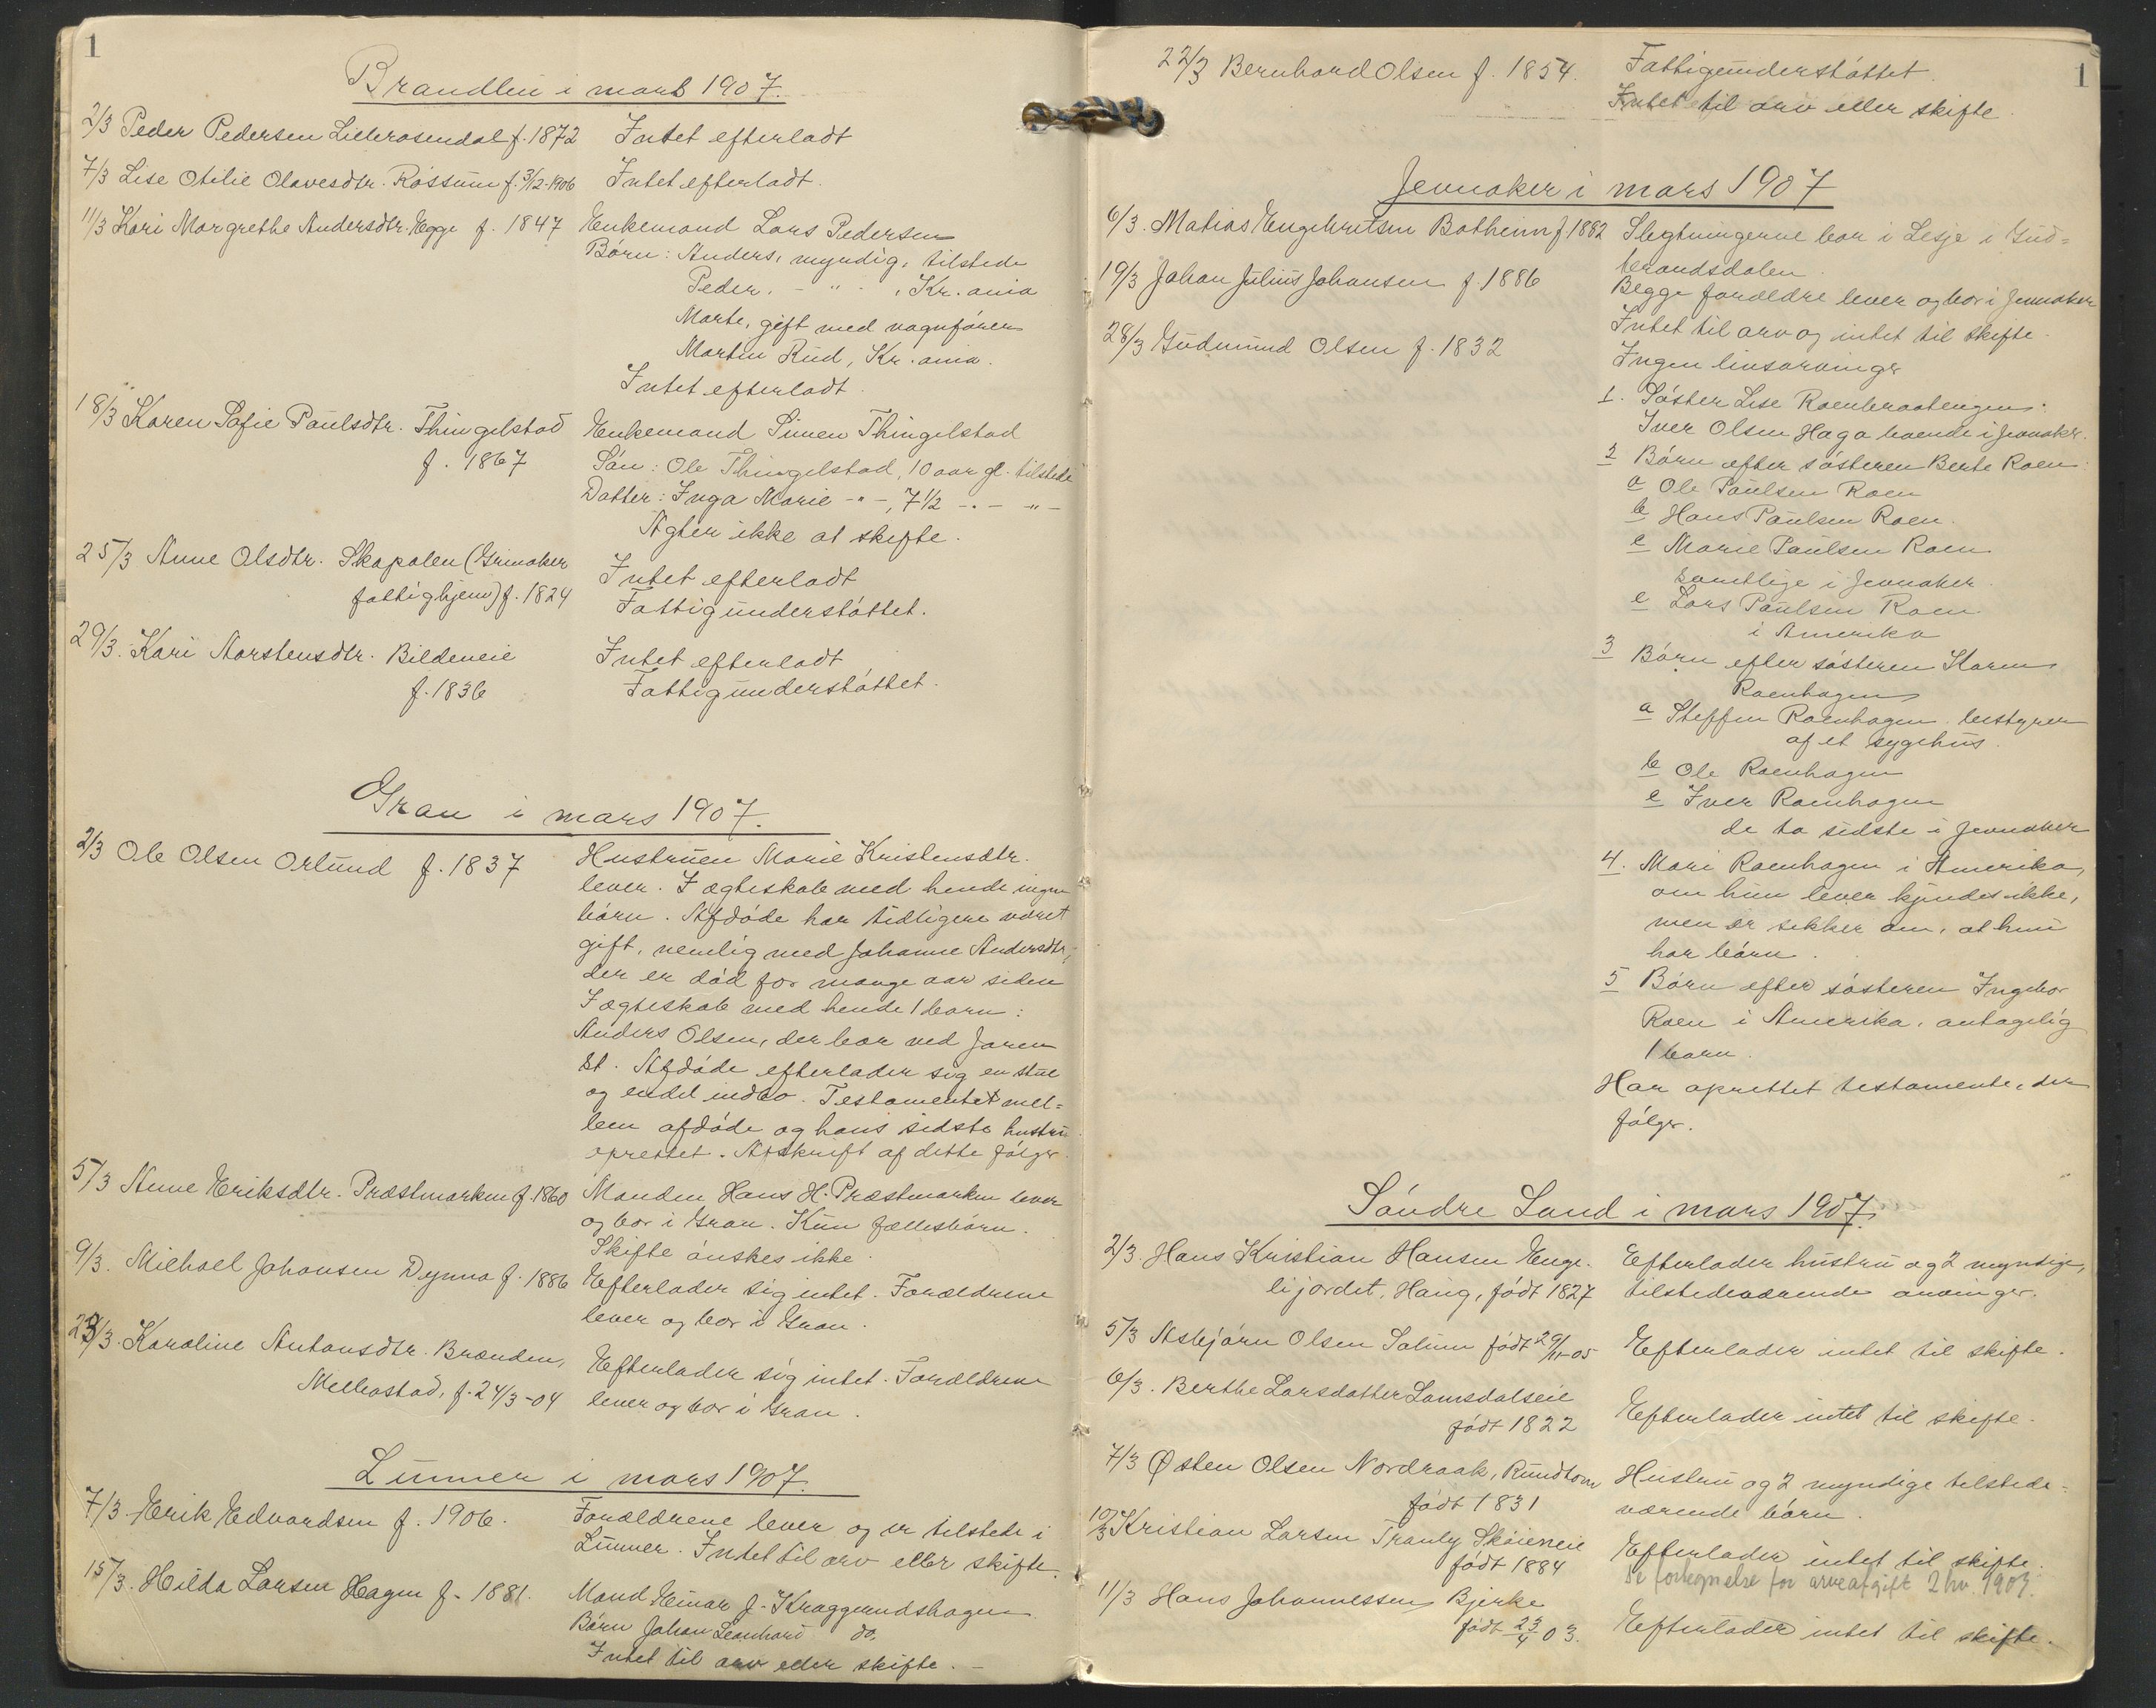 1
Brandbu i mars 1907.
2/3 Peder Pedersen Lillerosendal f. 1872 Intet efterladt
7/3 Lise Otilie Olavesdtr. Røssum f. 3/2-1906 Intet efterladt.
11/3 Kari Margrethe Andersdtr. Egge f. 1847 Enkemand Lars Pedersen
Børn: Anders, myndig, tilstede
Peder, - " - , Kr.ania
Marte, gift med vognfører
Martin Rud, Kr.ania.
Intet efterladt.
18/3 Karen Sofie Paulsdtr. Thingelstad Enkemand Simen Thingelstad
f. 1867 Søn: Ole Thingelstad, 10 aar gl. tilstede
Datter: Inga Marie - " -, 7 1/2 - " - - " -
Agter ikke at skifte.
25/3 Anne Olsdtr. Skapalen (Grinaker Intet efterladt
fattighjem) f. 1824 Fattigunderstøttet.
29/3. Kari Aorstensdtr. Bildeneie Intet efterladt
f. 1836 Fattigunderstøttet.
Gran i mars 1907.
2/3 Ole Olsen Orlund f. 1837 Hustruen Marie Kristensdtr.
lever. I ægteskab med hende ingen
børn. Afdøde har tidligere været
gift, nemlig med Johanne Andersdtr.,
der er død for mange aar siden
I ægteskab med hende 1 barn:
Anders Olsen, der bor ved Jaren
St. Afdøde efterlader sig en stue
og endel indbo. Testamentet mel=
lem afdøde og hans sidste hustru
oprettet. Afskrift af dette følger.
5/3 Anne Eriksdtr. Præstmarken f. 1860 Manden Hans H. Præstmarken lever
og bor i Gran. Kun fællesbørn.
Skifte ønskes ikke.
9/3. Michael Johansen Dynna f. 1886 Efterlader sig intet. Forældrene
lever og bor i Gran.
23/3. Karoline Antonsdtr. Brænden, Efterlader sig intet. Forældrene
Melbostad, f. 24/3-04 lever og bor i Gran.
Lunner i mars 1907.
7/3. Erik Edvardsen f. 1906. Forældrene lever og er tilstede i
Lunner. Intet til arv eller skifte.
15/3. Hilda Larsen Hagen f. 1881. Mand Einar J. Kraggerudshagen
Børn Johan Leonhard do.
Intet til arv eller skifte. -
1
22/3 Bernhard Olsen f. 1854. Fattigunderstøttet.
Intet til arv eller skifte.
Jevnaker i mars 1907
6/3. Matias Engebretsen Botheim f 1882 Slegtningerne bor i Lesje i Gud=
brandsdalen.
19/3 Johan Julius Johansen f. 1886 Begge forældre lever og bor i Jevnaker
Intet til arv og intet til skifte.
28/3 Gudmund Olsen f. 1832 Ingen livsarvinger
1. Søster Lise Roenbraatengen.
Iver Olsen Haga boende i Jevnaker.
2 Børn efter søsteren Berte Roen:
a Ole Paulsen Roen
b Hans Paulsen Roen.
c Marie Paulsen Roen
samtlige i Jevnaker.
e Lars Paulsen Roen
i Amerika
3 Børn efter søsteren Karen
Roenhagen
a Steffen Roenhagen bestyrer
af et sygehus.
b Ole Roenhagen
c Iver Roenhagen
de to sidste i Jevnaker
4. Mari Roenhagen i Amerika,
om hun lever kjendes ikke,
men er sikker om, at hun
har børn.
5 Børn efter søsteren Ingebor
Roen i Amerika, antagelig
1 barn.
Har oprettet testamente, der
følger.
Søndre Land i mars 1907.
2/3. Hans Kristian Hansen Enge- Efterlader hustru og 2 myndige,
lijordet, Haug, født 1827 tilstedeværende arvinger.
5/3 Asbjørn Olsen Sølum født 29/11-05 Efterlader intet til skifte.
6/3. Berthe Larsdatter Lomsdalseie
født 1822 Efterlader intet til skifte.
7/3 Østen Olsen Nordraak, Rundtom Hustru og 2 myndige tilstede=
født 1831 værende børn.
10/3 Kristian Larsen Tranly Skøieneie
født 1884 Efterlader intet til skifte.
Se fortegnelse for arveafgift 2 hv. 1907.
11/3 Hans Johannessen Bjerke
født 23/4 03. Efterlader intet til skifte.